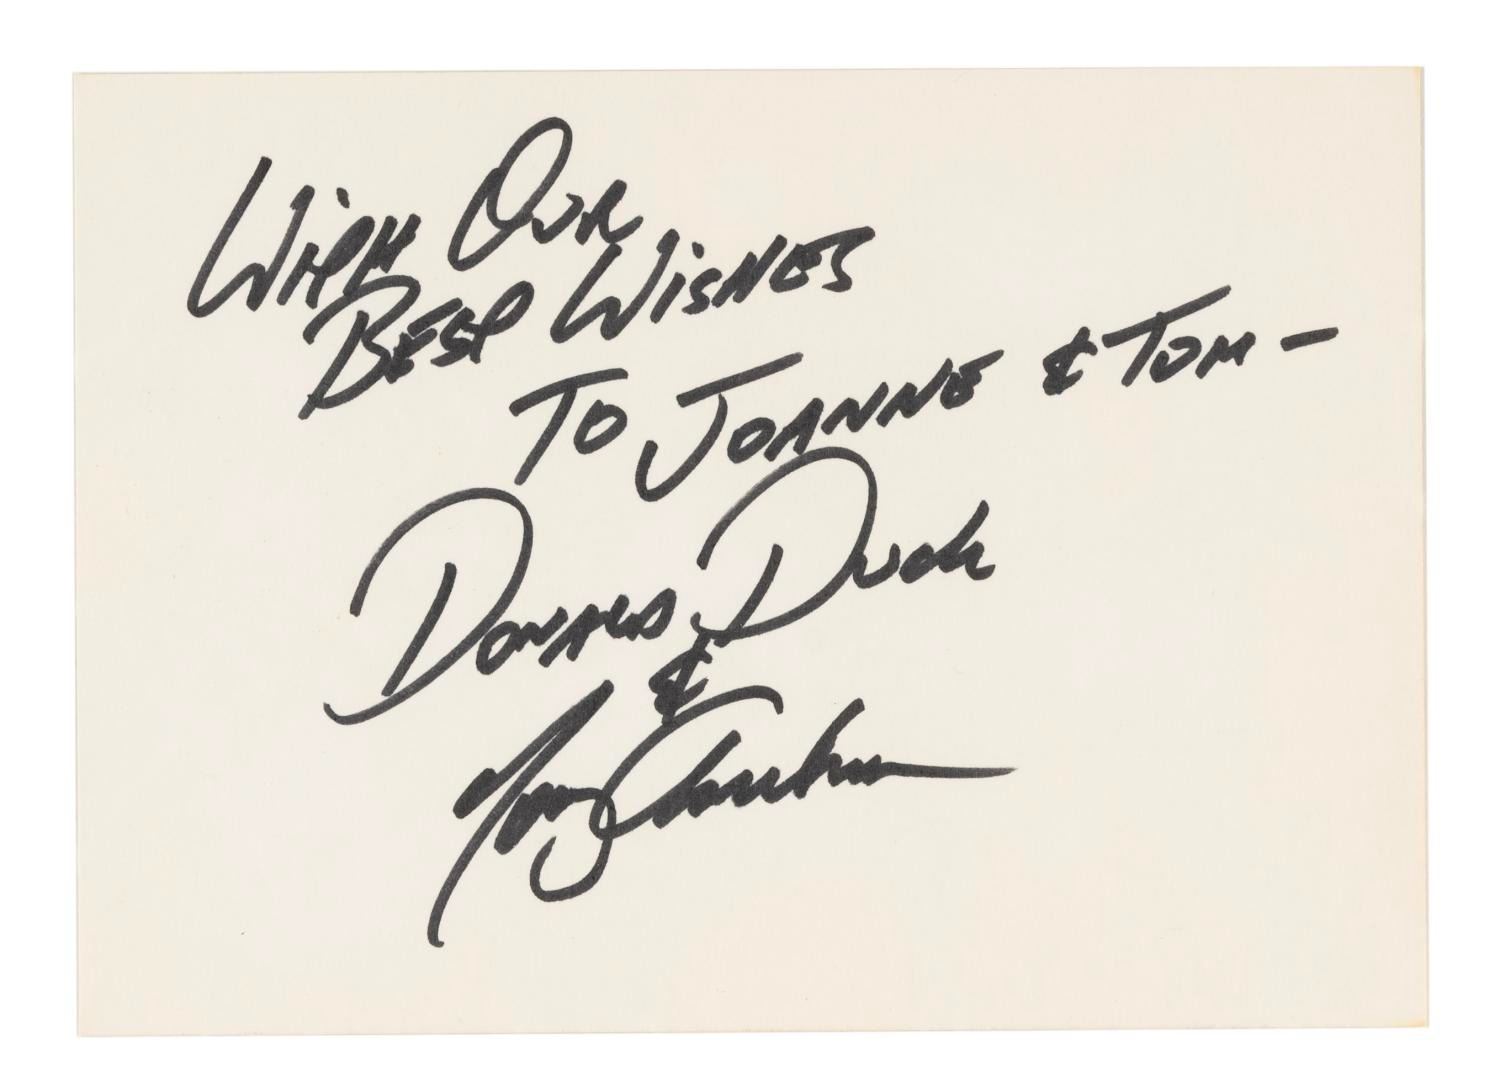 With Our
Best Wishes
To Joanne & Tom -
Donald Duck
&
Tony Anselmo